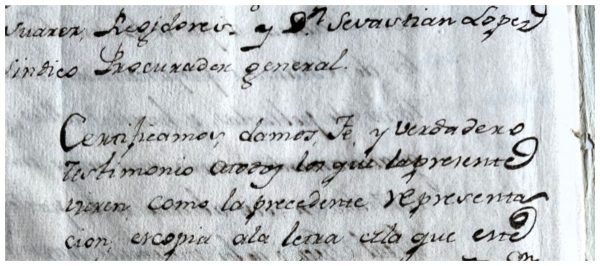 Suarez, Regidores, y Dn Sevastian Lopez
Sindico Procurador general.
Certificamos, damos, Fe, y verdadero
testimonio atodos los que la presente
vieren como la precedente representa
cion, es copia ala letra de la que este